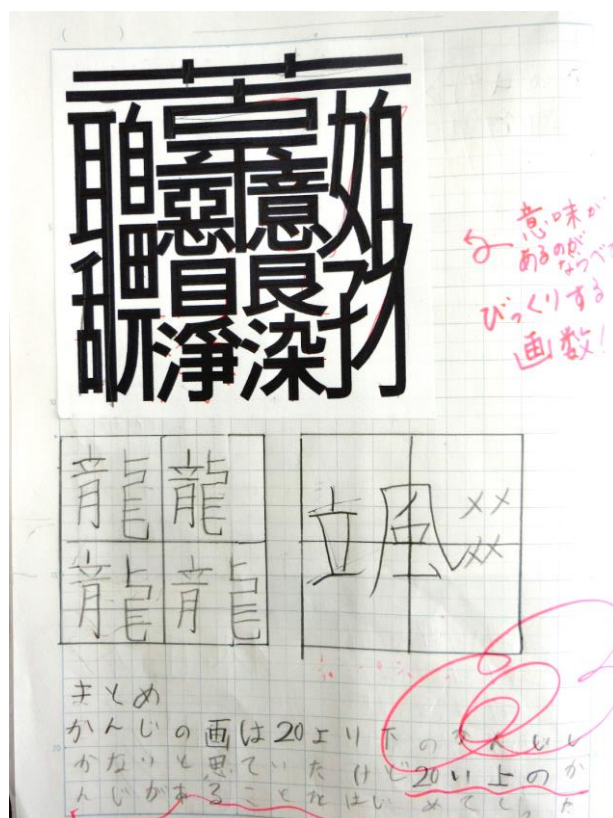 意味が
あるのが
びっくりする
画数!
龍 龍
龍 龍
まとめ
かんじの画は20より下のかんじし
かないと思ていたけど20い上のか
んじがあることをはじめてしった